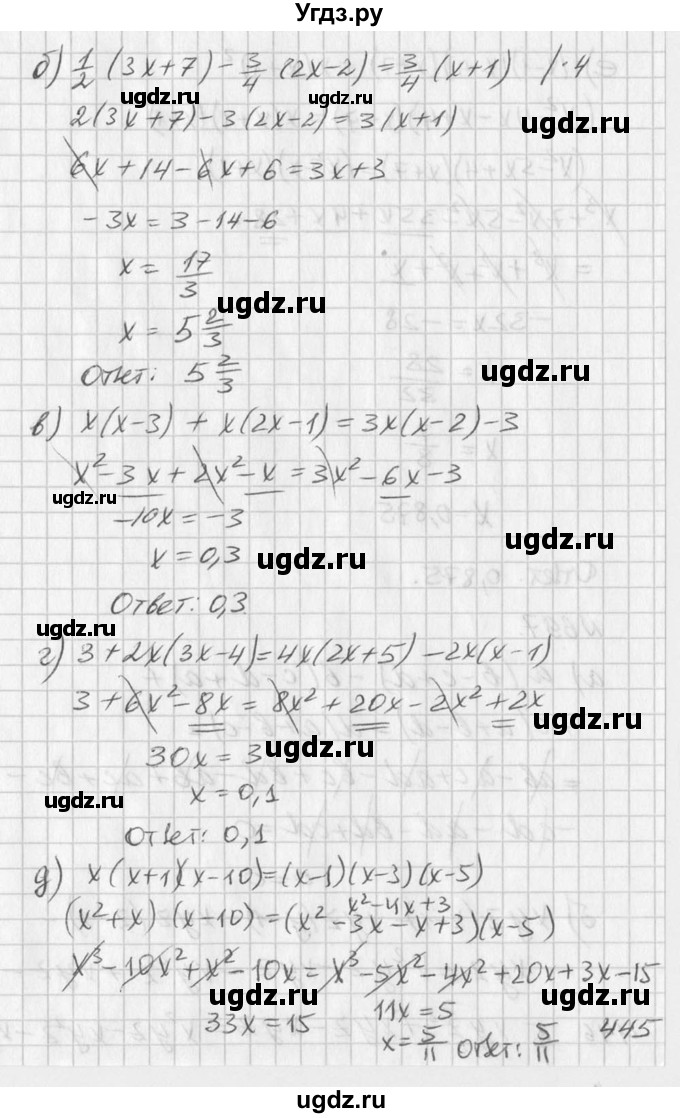 Угдз.ру
б) 1/2 (3x+7) - 3/4 (2x-2) = 3/4 (x+1) /·4
ugdz.ru ugdz.ru
2(3x+7) - 3(2x-2) = 3(x+1)
ugdz.ru
6x + 14 - 6x + 6 = 3x + 3
-3x = 3 - 14 - 6
x = 17/3
ugdz.ru
x = 5 2/3
Ответ: 5 2/3
ugdz.ru
в) x(x-3) + x(2x-1) = 3x(x-2) - 3
x² - 3x + 2x² - x = 3x² - 6x - 3
ugdz.ru
-10x = -3
ugdz.ru
x = 0,3
ugdz.ru
Ответ: 0,3
ugdz.ru
г) 3 + 2x(3x-4) = 4x(2x+5) - 2x(x-1)
3 + 6x² - 8x = 8x² + 20x - 2x² + 2x
30x = 3
ugdz.ru
x = 0,1
ugdz.ru
Ответ: 0,1
ugdz.ru
д) x(x+1)(x-10) = (x-1)(x-3)(x-5)
x² - 4x + 3
(x² + x)·(x-10) = (x² - 3x - x + 3)(x-5)
ugdz.ru
x³ - 10x² + x² - 10x = x³ - 5x² - 4x² + 20x + 3x - 15
ugdz.ru ugdz.ru
33x = 15
11x = 5
x = 5/11 Ответ: 5/11
445
ugdz.ru
ugdz.ru
Угдз.ру